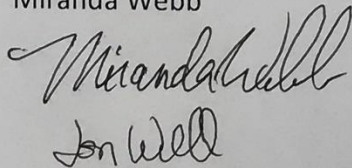 Miranda Webb
Miranda Webb
Jon Webb